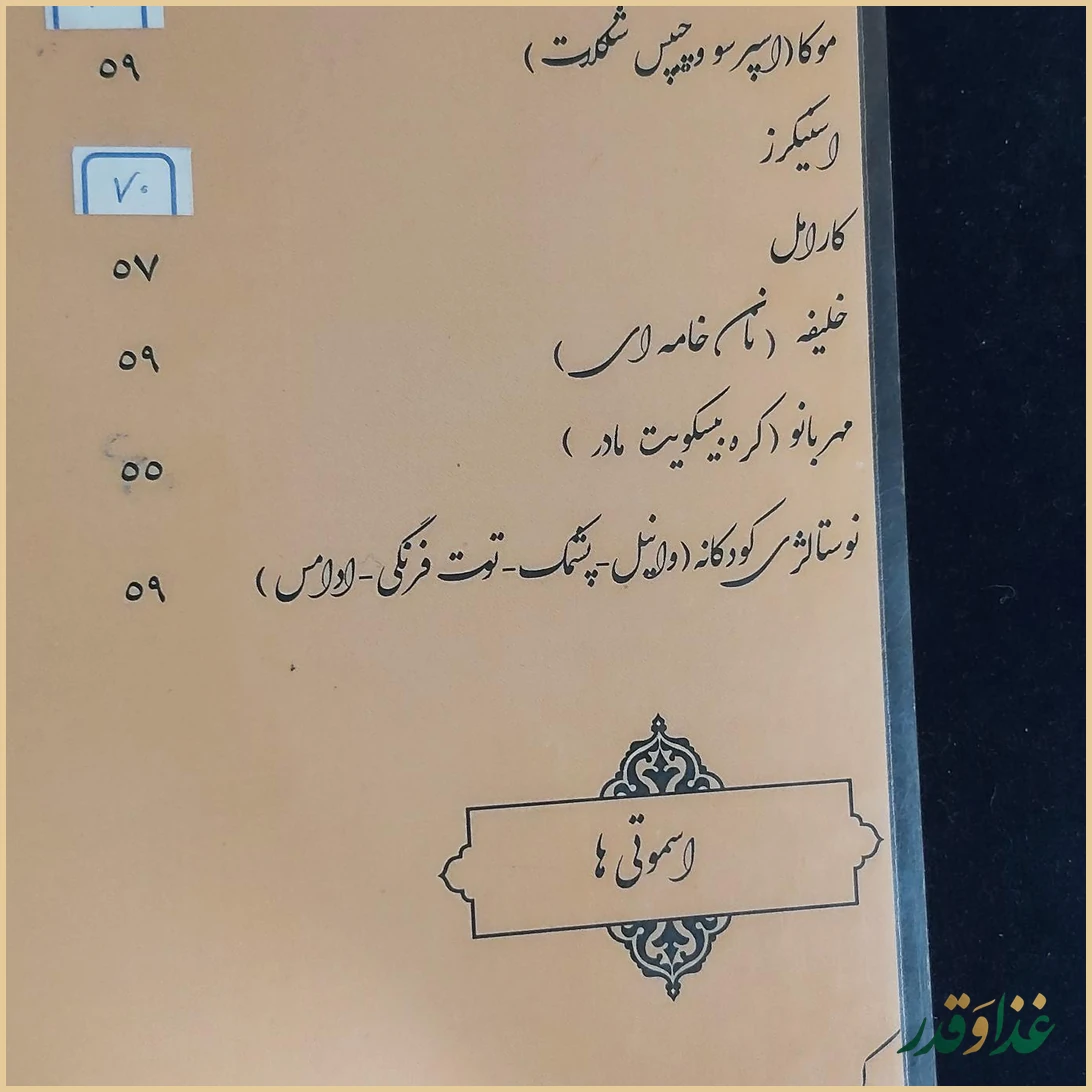 موکا(اسپرسو و چیپس شکلات) ۵۹
اسنیکرز ۷۰
کارامل ۵۷
خلیفه (نان خامه ای) ۵۹
مهربانو (کره بیسکویت مادر) ۵۵
نوستالژی کودکانه (وانیل-پشمک-توت فرنگی-ادامس) ۵۹
اسموتی ها
غذا و قدر